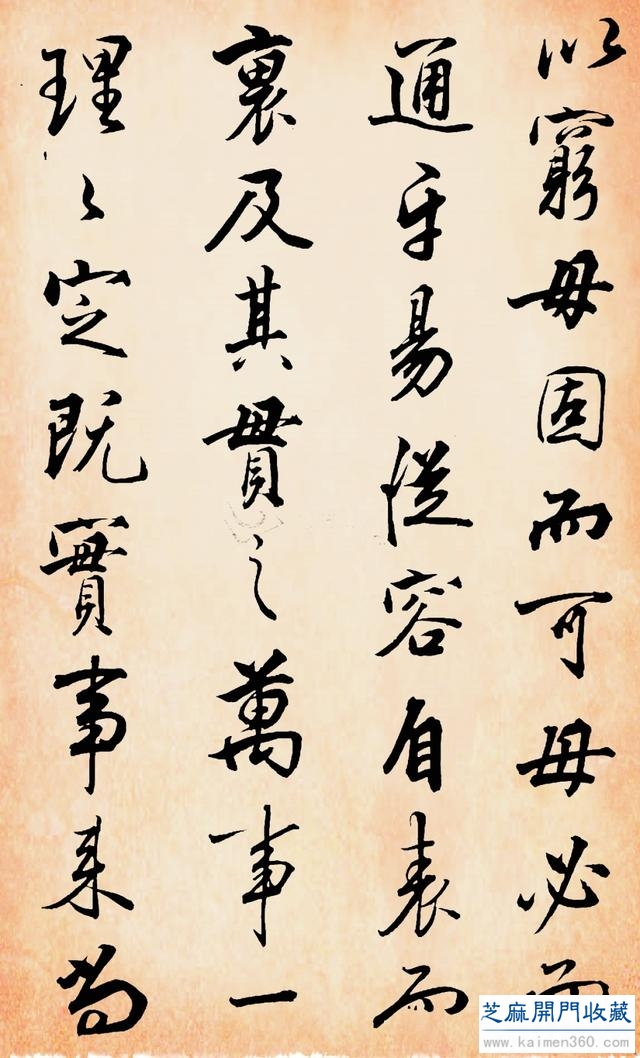 以窮毋固而可毋必而
通平易從容自表而
裏及其貫之萬事一
理々定既實事来尚
芝麻開門收藏
www.kaimen360.com